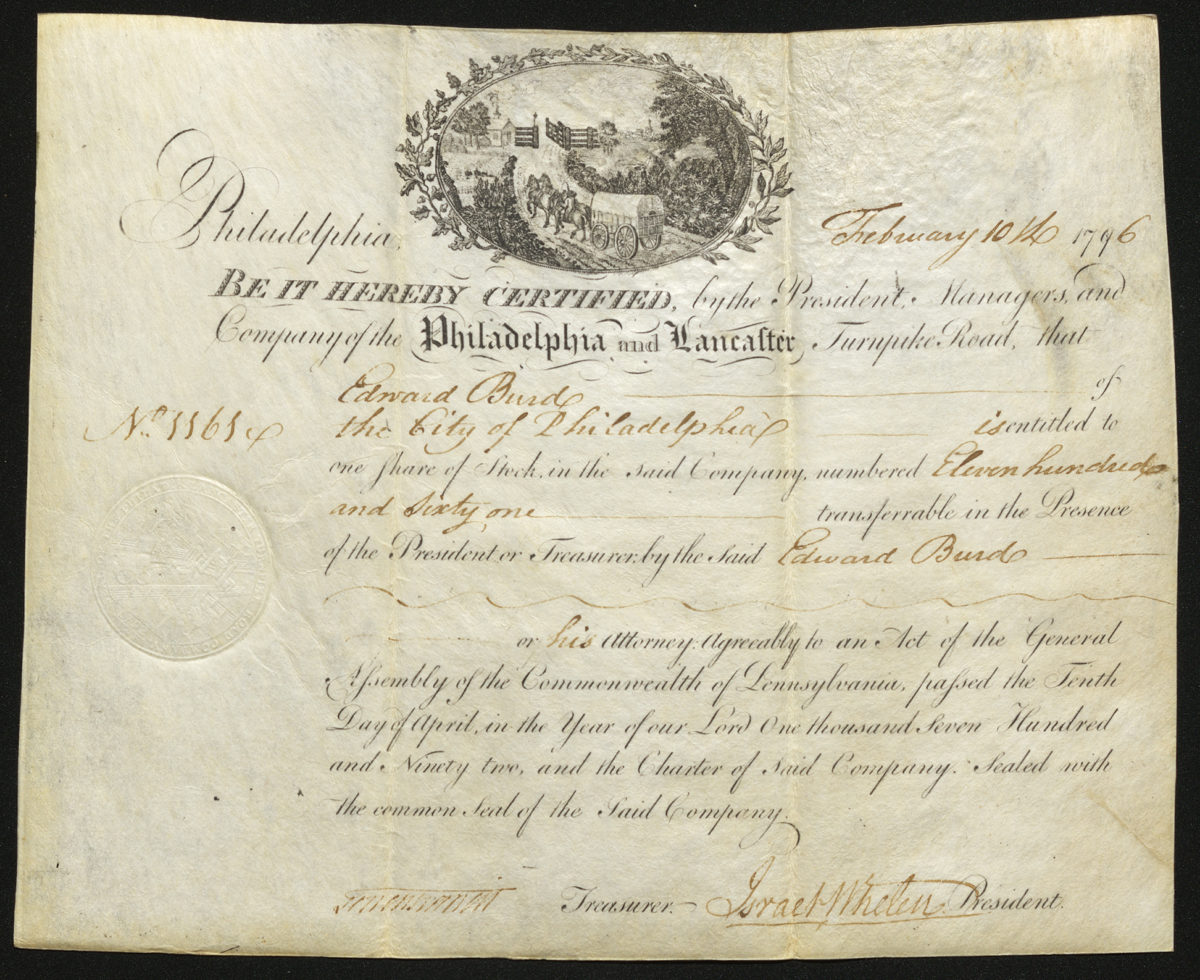 Philadelphia, February 10th 1796
BE IT HEREBY CERTIFIED, by the President, Managers, and
Company of the Philadelphia and Lancaster Turnpike Road, that
Edward Burd of
No. 1161 the City of Philadelphia is entitled to
one Share of Stock, in the said Company, numbered Eleven hundred
and Sixty one transferrable in the Presence
of the President or Treasurer, by the Said Edward Burd
or his Attorney: Agreeably to an Act of the General
Assembly of the Commonwealth of Pennsylvania, passed the Tenth
Day of April, in the Year of our Lord One thousand Seven Hundred
and Ninety two, and the Charter of Said Company. Sealed with
the common Seal of the Said Company.
Treasurer. Israel Whelen President.